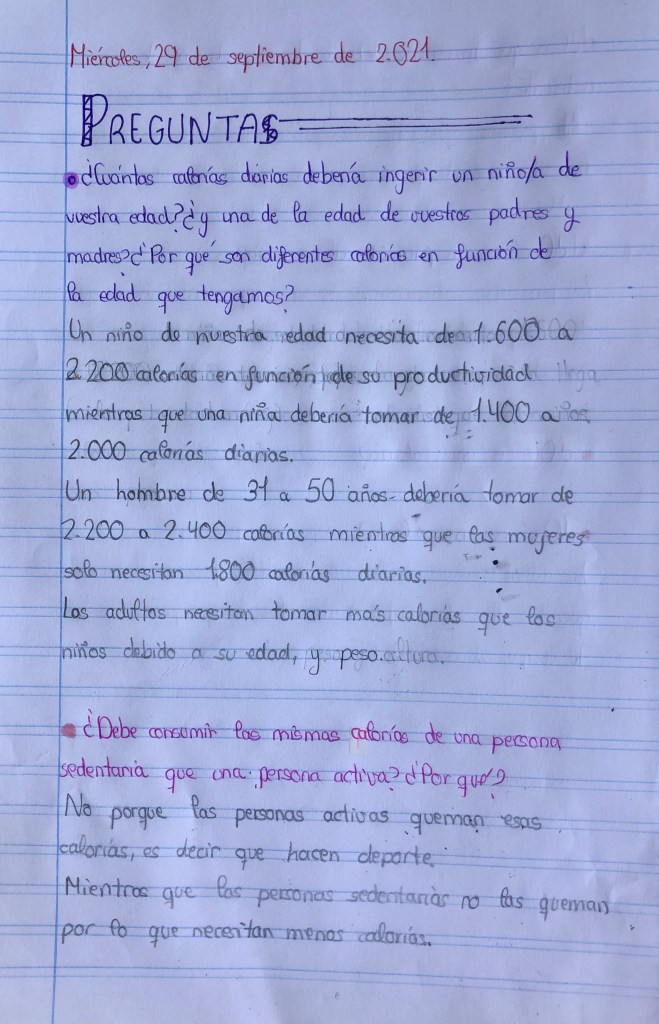 Miércoles, 29 de septiembre de 2.021.
PREGUNTAS
¿Cuántas calorías diarias debería ingerir un niño/a de
vuestra edad? ¿y una de la edad de vuestros padres y
madres? ¿Por qué son diferentes calorías en función de
la edad que tengamos?
Un niño de nuestra edad necesita de 1.600 a
2.200 calorías en función de su productividad
mientras que una niña debería tomar de 1.400 a
2.000 calorías diarias.
Un hombre de 31 a 50 años debería tomar de
2.200 a 2.400 calorías mientras que las mujeres
solo necesitan 1.800 calorías diarias.
Los adultos necesitan tomar más calorías que los
niños debido a su edad, y peso.
¿Debe consumir las mismas calorías de una persona
sedentaria que una persona activa? ¿Por qué?
No porque las personas activas queman esas
calorías, es decir que hacen deporte.
Mientras que las personas sedentarias no las queman
por lo que necesitan menos calorías.